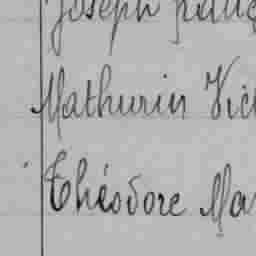 Joseph
Mathurin Vic
Théodore Ma